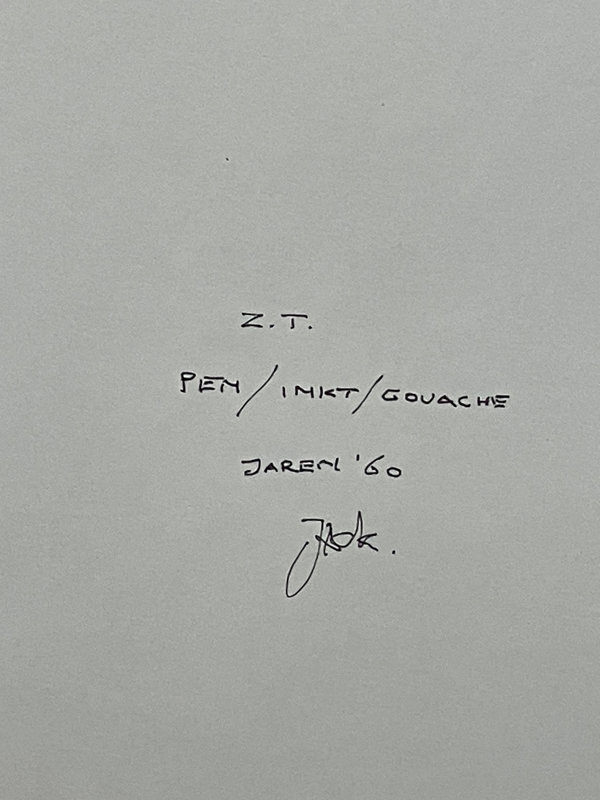 Z.T.
PEN/INKT/GOUACHE
JAREN '60